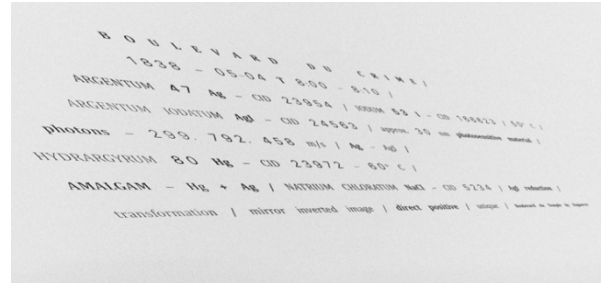 BOULEVARD DU CRIME |
1838 – 05-04 T 8:00 – 8:10 |
ARGENTUM 47 Ag – CID 23954 | IODIUM 53 I – CID | 60° C |
ARGENTUM IODATUM AgI – CID 24563 | approx. 30 nm photosensitive material |
photons – 299. 792. 458 m/s | Ag – AgI |
HYDRARGYRUM 80 Hg – CID 23972 – 60° C |
AMALGAM – Hg + Ag | NATRIUM CHLORATUM NaCl – CID 5234 | AgI reduction |
transformation | mirror inverted image | direct positive | unique |